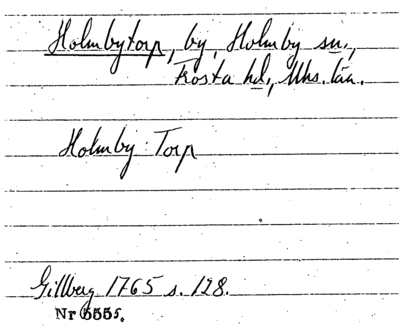 Holmbytorp, by, Holmby sn.,
Frosta hd., Mhs. län.
Holmby Torp
Gillberg 1765 s. 128.
Nr 5555.